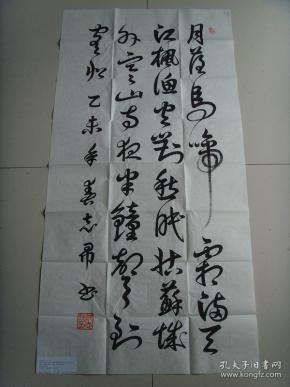 月落烏啼霜滿天
江楓漁火對愁眠姑蘇城
外寒山寺夜半鐘聲到
客船 乙未年春志 書
孔夫子旧书网